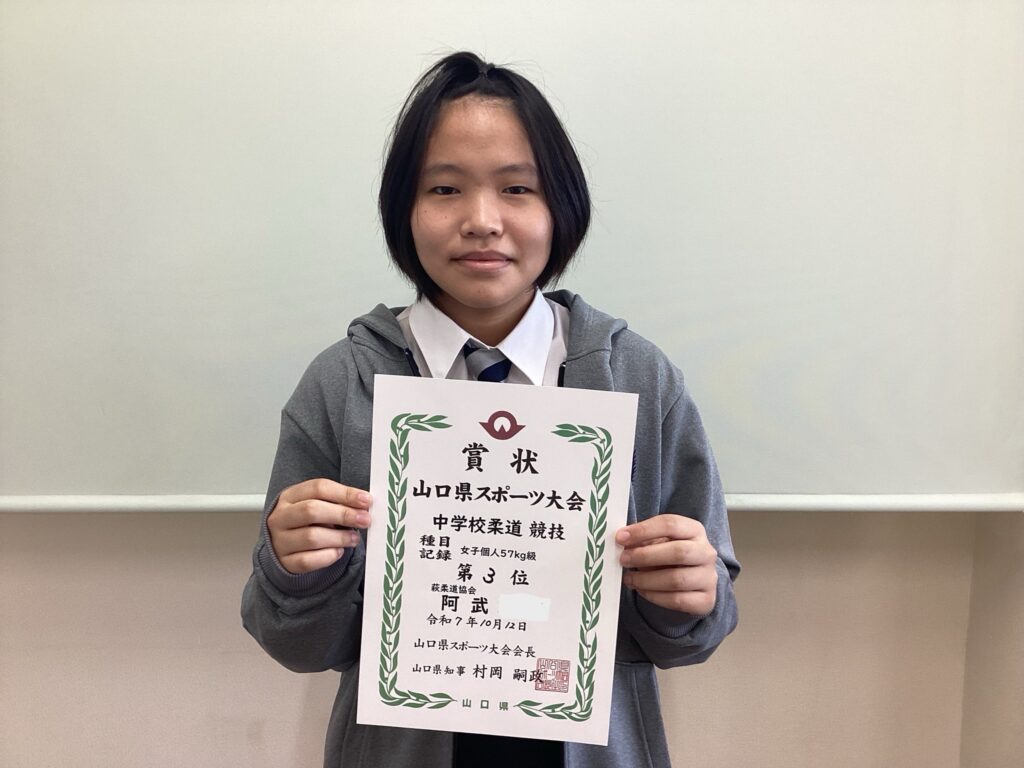 賞状
山口県スポーツ大会
中学校柔道 競技
種目
記録 女子個人57kg級
第3位
萩柔道協会
阿武
令和7年10月12日
山口県スポーツ大会会長
山口県知事 村岡 嗣政
山口県